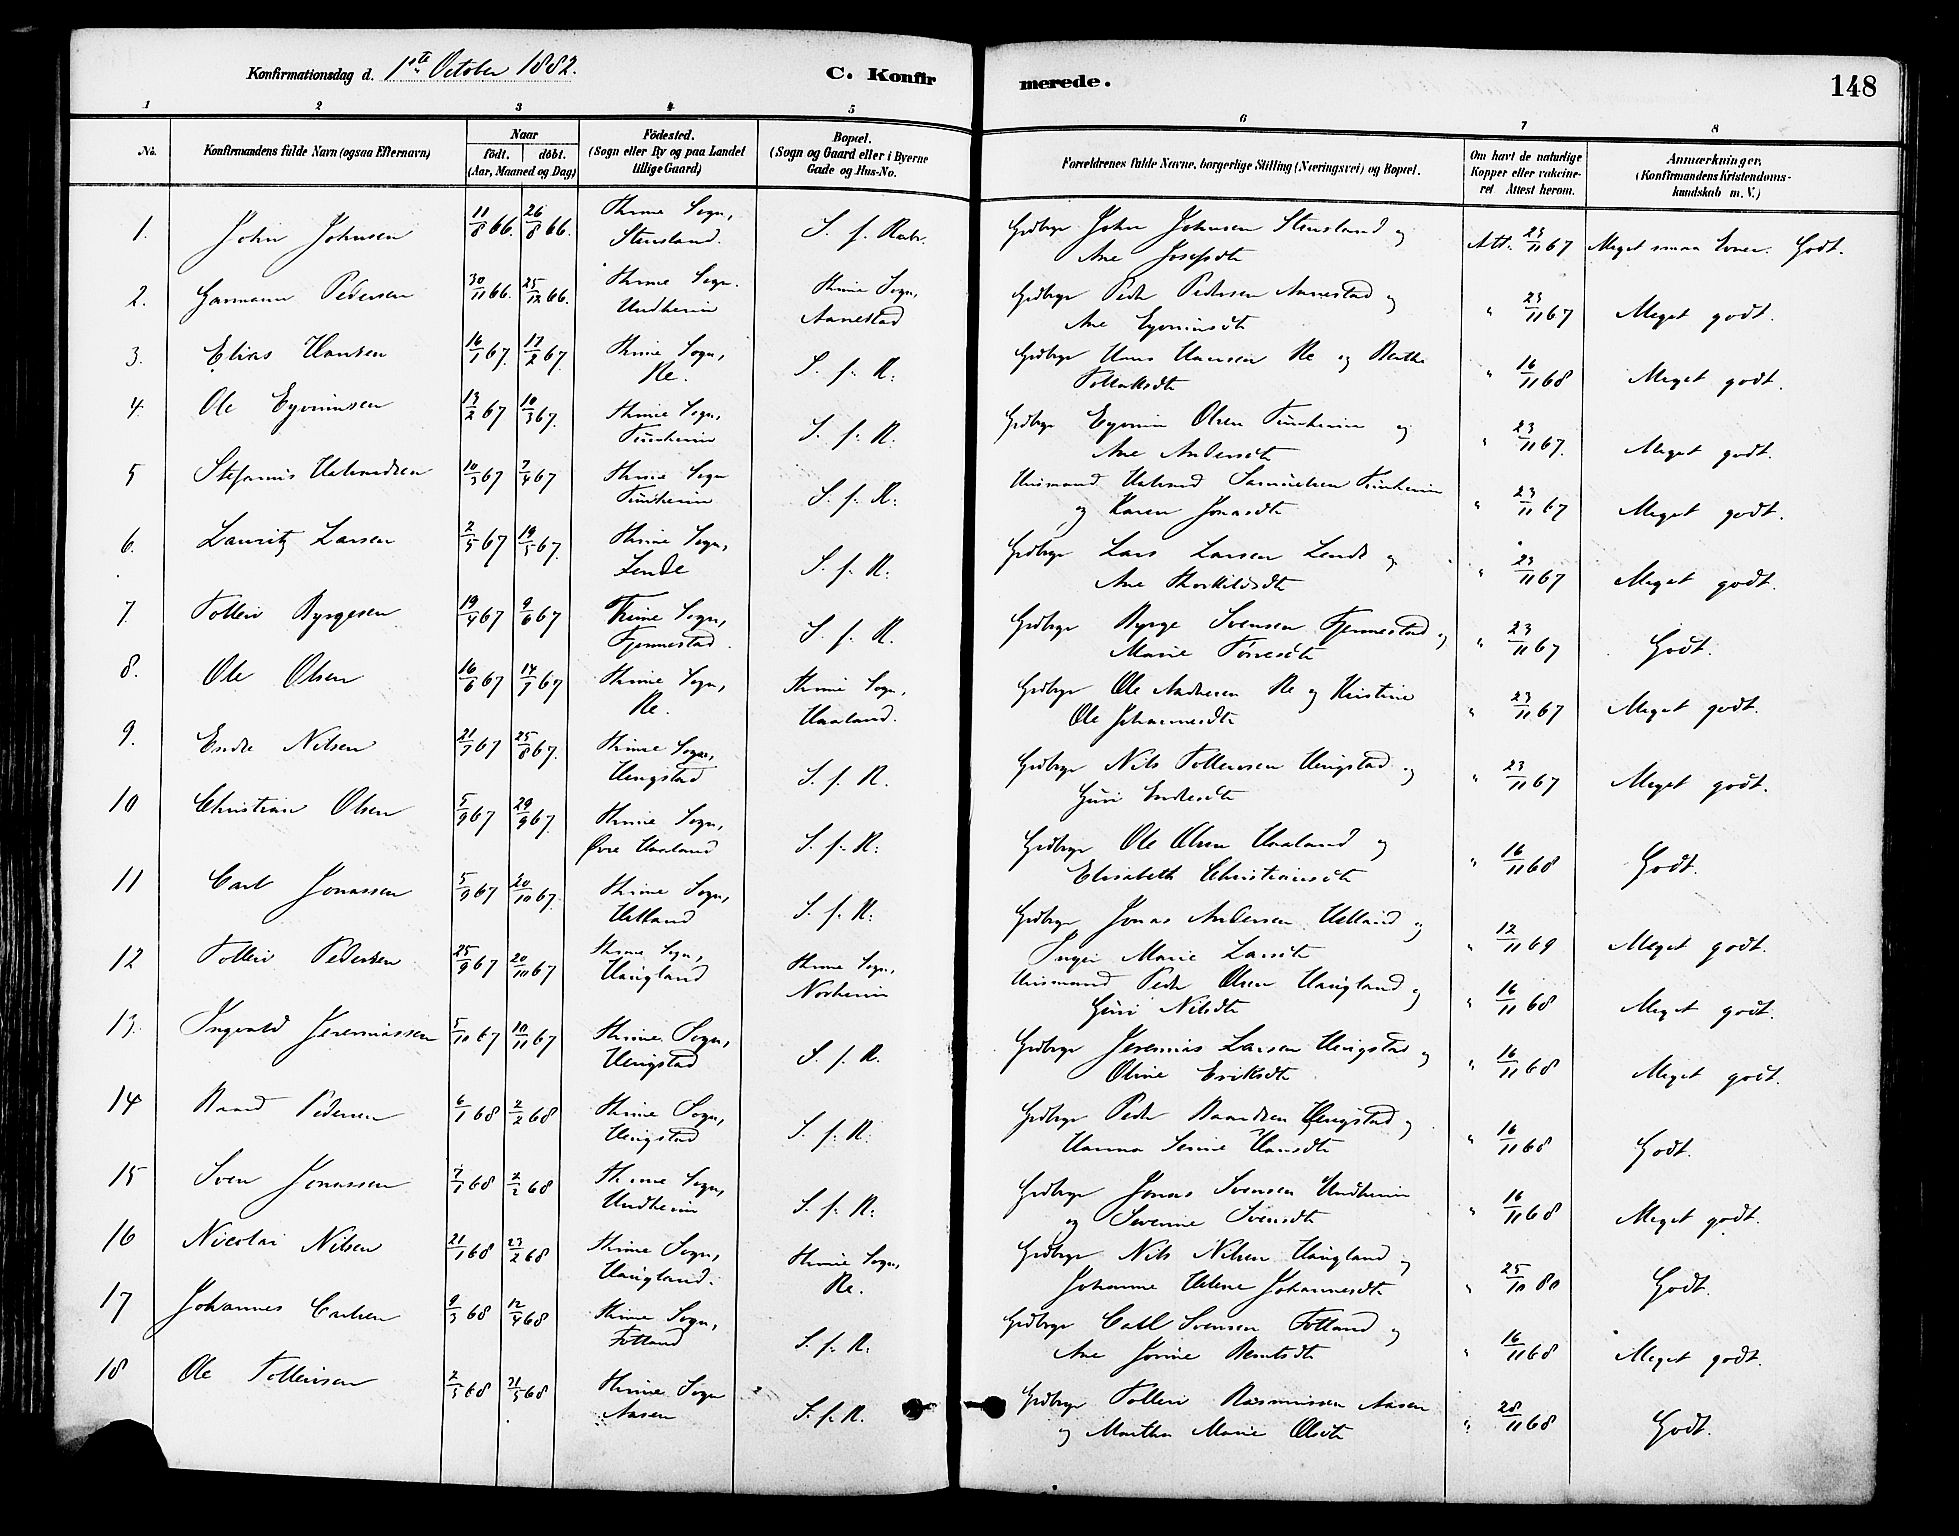 Konfirmationsdag d. 1ste October 1882.
C. Konfirmerede.
148
1 2 3 4 5 6 7 8
No.
Konfirmandens fulde Navn (ogsaa Efternavn)
Naar
födt. döbt.
(Aar, Maaned og Dag)
Födested.
(Sogn eller By og paa Landet
tillige Gaard)
Bopæl.
(Sogn og Gaard eller i Byerne
Gade og Hus-No.
Forældrenes fulde Navne, borgerlige Stilling (Næringsvei) og Bopæl.
Om havt de naturlige
Kopper eller vakcine-
ret Attest herom.
Anmærkninger,
(Konfirmandens Kristendoms-
kundskab m. V.)
1. John Johnsen 11/8 66. 26/8 66. Thime Sogn, Stensland. S. f. Rubr. Grdbrgr John Johnsen Stensland og
Ane Josefsdtr Att. 23/11 67 Meget smaa Evner. Godt.
2. Garmann Pedersen 30/11 66. 25/12 66. Thime Sogn. Undheim Thime Sogn, Aanestad Grdbrgr Peder Pedersen Aanestad og
Ane Eyvinsdtr " 23/11 67 Meget godt.
3. Elias Hansen 16/1 67. 17/2 67. Thime Sogn, Re. S. f. R. Grdbrgr Hans Hansen Re og Berthe
Tollaksdtr " 16/11 68 Meget godt.
4. Ole Eyvinsen 13/2 67 10/3 67. Thime Sogn, Tunheim S. f. R. Grdbrgr Eyvin Olsen Tunheim og
Ane Andersdtr " 23/11 67. Meget godt.
5 Stefanus Halvardsen 10/3 67 7/4 67 Thime Sogn Tunheim S. f. R. Husmand Halvard Samuelsen Tunheim
og Karen Jonasdtr " 23/11 67 Meget godt.
6. Lauritz Larsen 2/5 67 19/5 67. Thime Sogn, Lende S. f. R. Grdbrgr Lars Larsen Lende og
Ane Thorkildsdtr " 23/11 67 Meget godt.
7. Tollev Byrgesen 19/4 67 9/6 67 Thime Sogn, Tjennestad. S. f. R. Grdbrgr Byrge Svensen Tjennestad og
Marie Tørresdtr " 23/11 67 Godt.
8. Ole Olsen 16/6 67 14/7 67 Thime Sogn, Re. Thime Sogn, Haaland. Grdbrgr Ole Andersen Re og Kristine
Ole Johannesdtr " 23/11 67 Meget godt.
9. Endre Nilsen 21/7 67 25/8 67. Thime Sogn, Hengstad S. f. R. Grdbrgr Nils Tollevsen Hengstad og
Guri Endresdtr " 23/11 67 Meget godt.
10 Christian Olsen 5/9 67 29/9 67. Thime Sogn, Øvre Haaland S. f. R. Grdbrgr Ole Olsen Haaland og
Elisabeth Christiansdtr " 16/11 68 Godt.
11 Carl Jonassen 5/9 67 20/10 67. Thime Sogn, Helland S. f. R. Grdbrgr Jonas Andersen Helland og
Inger Marie Larsdtr " 12/11 69 Meget godt.
12 Tollev Pedersen 25/9 67 20/10 67 Thime Sogn, Haugland Thime Sogn, Norheim Husmand Peder Olsen Haugland og
Guri Nilsdtr " 16/11 68 Meget godt.
13. Ingvald Jeremiassen 5/10 67 10/11 67 Thime Sogn, Hengstad S. f. R. Grdbrgr Jeremias Larsen Hengstad og
Oline Eriksdtr " 16/11 68 Meget godt.
14 Baard Pedersen 6/1 68 2/2 68 Thime Sogn, Hengstad S. f. R. Grdbrgr Peder Baardsen Hengstad og
Hanna Serine Hansdtr " 16/11 68 Godt.
15 Sven Jonassen 7/1 68 2/2 68 Thime Sogn, Undheim S. f. R. Grdbrgr Jonas Svensen Undheim
og Severine Svensdtr " 16/11 68 Meget godt.
16 Nicolai Nilsen 21/1 68 23/2 68 Thime Sogn, Haugland. Thime Sogn, Re. Grdbrgr Nils Nilsen Haugland og
Johanne Helene Johannesdtr " 25/10 80 Godt.
17 Johannes Carlsen 9/3 68 12/4 68 Thime Sogn, Fotland S. f. R. Grdbrgr Call Svensen Fotland og
Ane Jorine Berntsdtr " 16/11 68 Meget godt.
18 Ole Tollevsen 2/5 68 21/5 68 Thime Sogn Aasen S. f. R. Grdbrgr Tollev Rasmussen Aasen
og Martha Marie Olsdtr " 28/11 68 Godt.